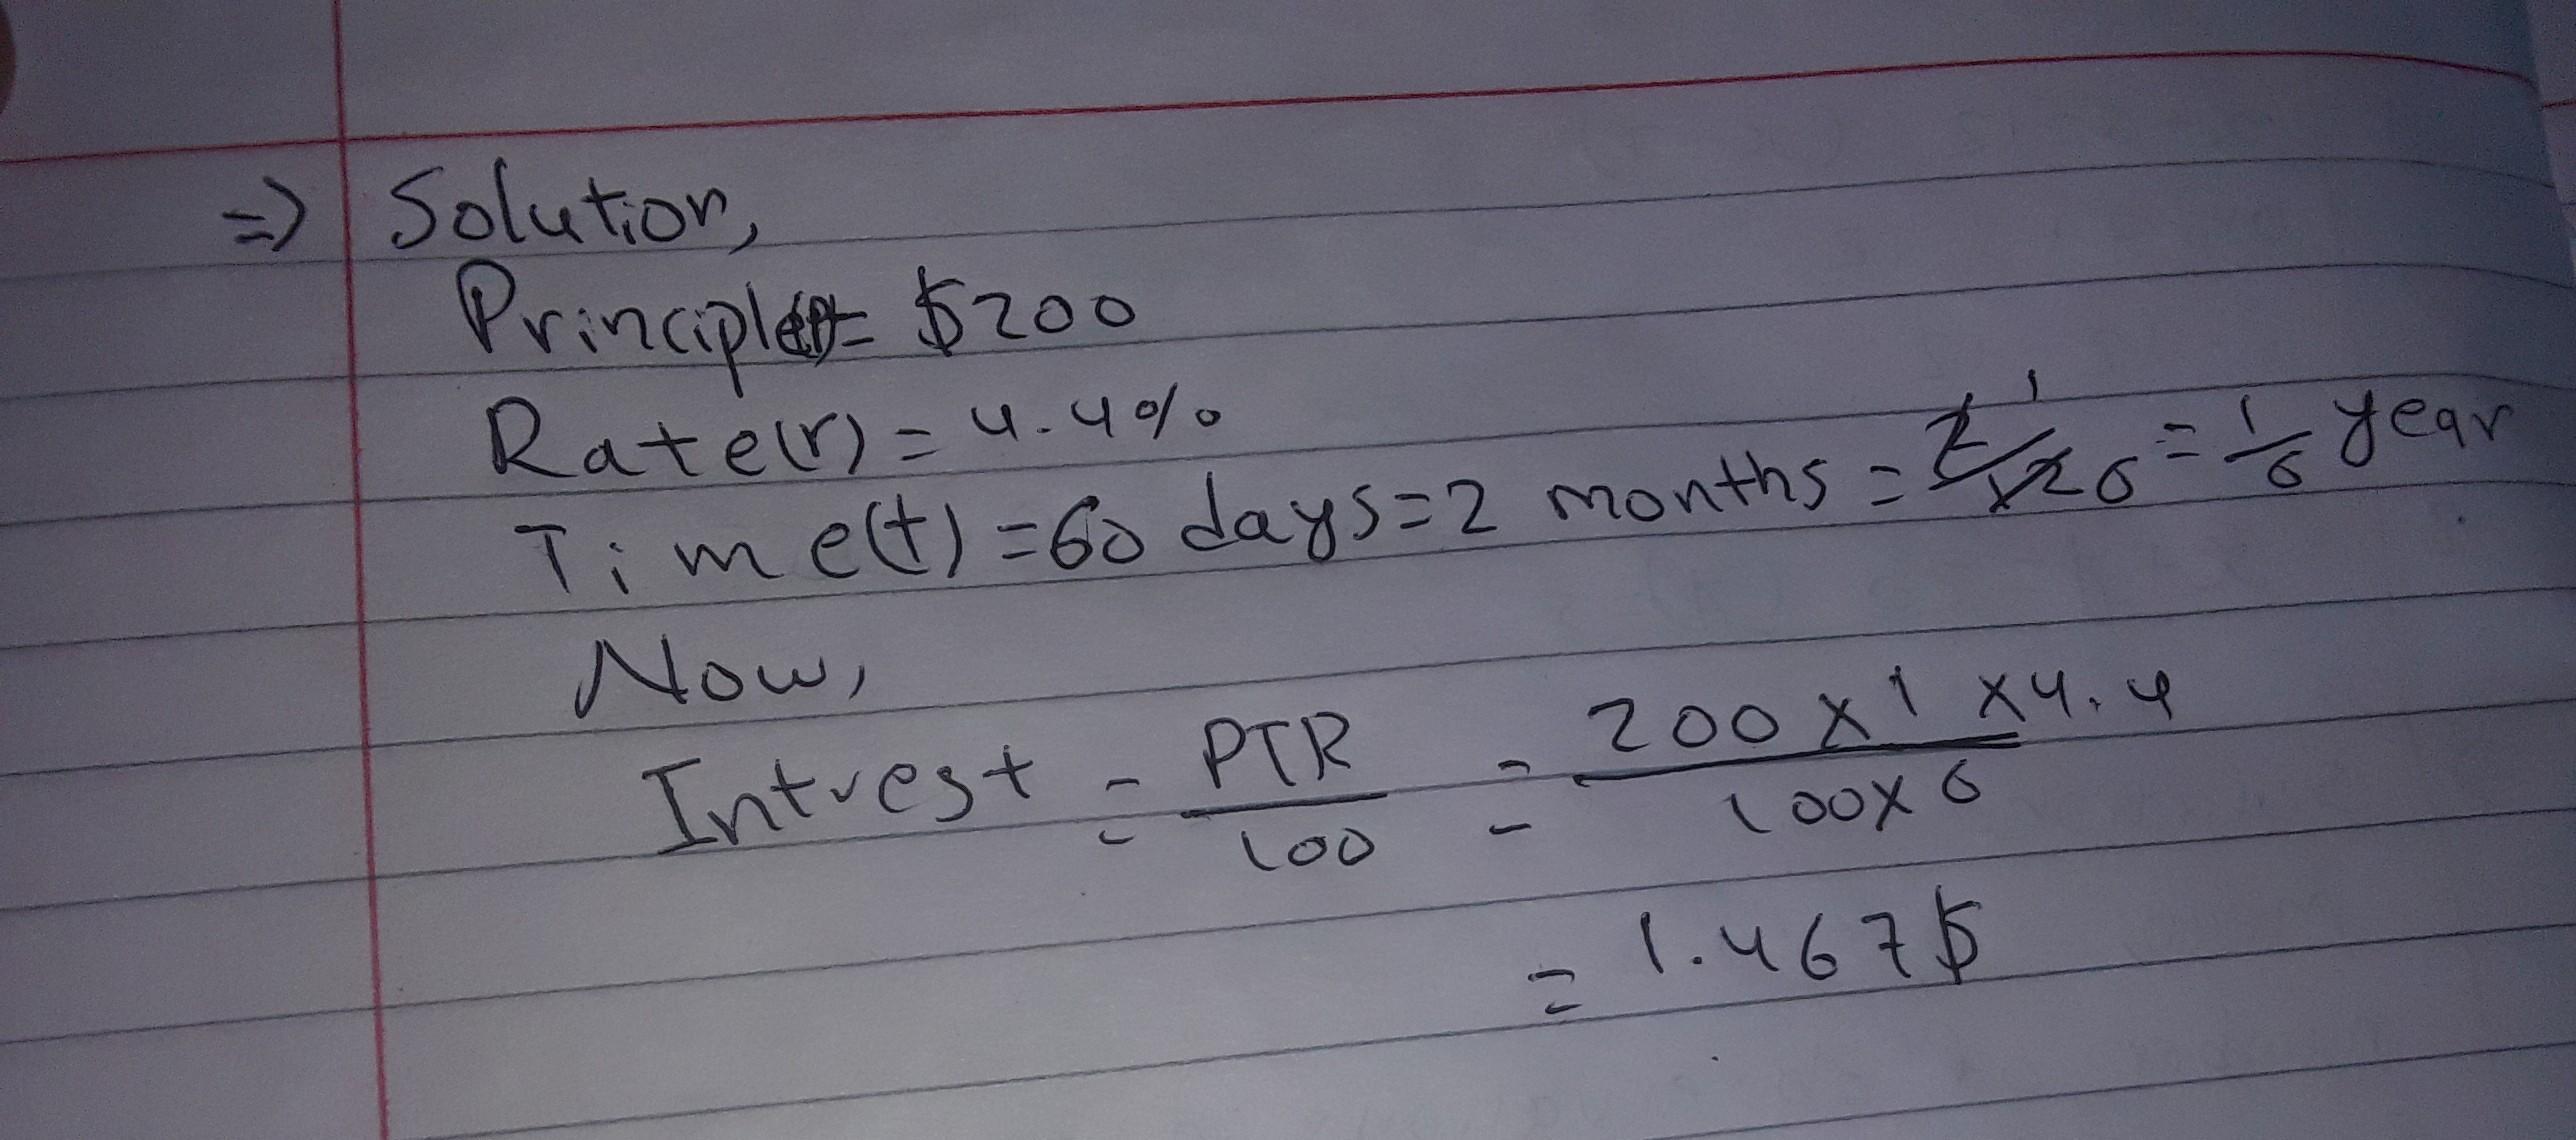 => Solution,
Principle(P)= $200
Rate(r) = 4.4%
Time(t) = 60 days = 2 months = 2/12 1 6 = 1/6 year
Now,
Intrest = PTR/100 = 200 x 1 x 4.4/100 x 6
= 1.467$